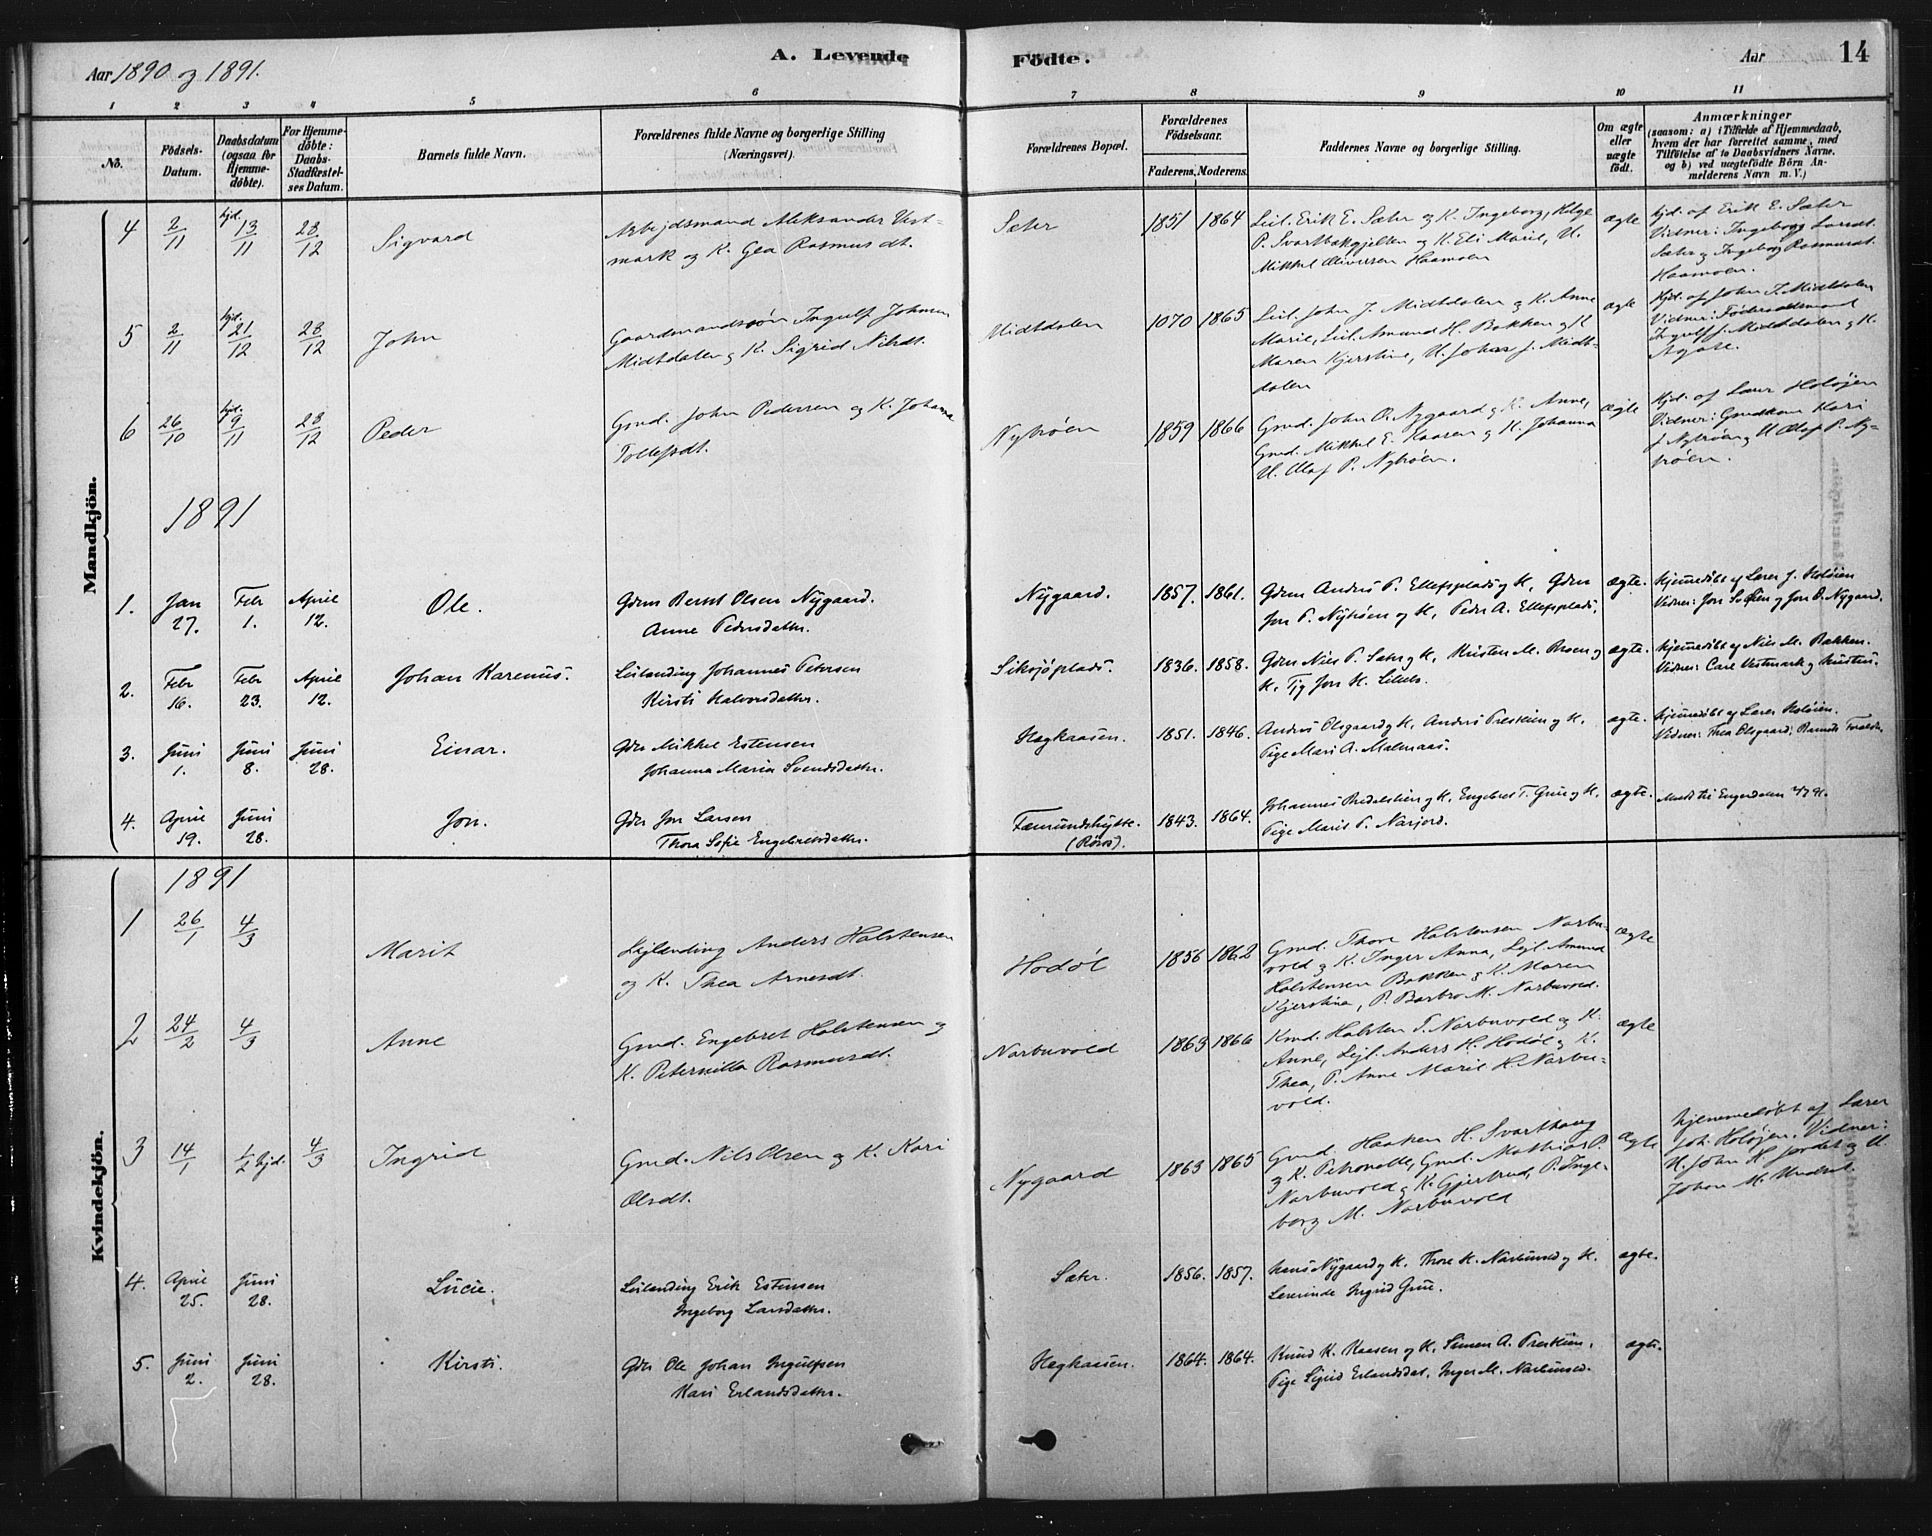 Aar 1890 og 1891.
A. Levende Födte.
Aar 14
1 2 3 4 5 6 7 8 9 10 11
No.
Födsels-Datum.
Daabsdatum (ogsaa for Hjemmedöbte).
For Hjemmedöbte: Daabs-Stadfæstelses Datum.
Barnets fulde Navn.
Forældrenes fulde Navne og borgerlige Stilling (Næringsvei).
Forældrenes Bopæl.
Forældrenes Födselsaar.
Faderens. Moderens.
Faddernes Navne og borgerlige Stilling.
Om ægte eller uægte födt.
Anmærkninger (saasom: a) i Tilfælde af Hjemmedaab, hvem der har forrettet samme, med Tilföielse af to Daabsvidners Navne. og b) ved uægtefödte Börn Anmelderens Navn m. V.)
Mandkjön.
4 2/11 hjd. 13/11 28/12 Sigvard
Arbejdsmand Aleksander Vestmark og K. Gea Rasmusdt.
Sæter 1851 1864
Leil. Erik E. Sæter og K. Ingeborg, Helge P. Svartbækgjelten og K. Eli Marie, U. Mikkel Haamoen
ægte
hjd. af Erik E. Sæter Vidner: Ingeborg Larsdt. Sæter og Ingeborg Rasmusdt. Haamoen.
5 2/11 hjd. 21/12 28/12 John
Gaardmandssøn Ingulf Johnsen Midtdalen og K. Sigrid Nilsdt.
Midtdalen 1070 1865
Leil. John J. Midtdalen og K. Anne Marie, Leil. Amund H. Bakken og K. Maren Kjerstine, U. Johas J. Midtdalen
ægte
hjd. af John J. Midtdalen Vidner: Ingulf J. Midtdalen og K.
6 26/10 hjd. 9/11 28/12 Peder
Gmd. John Pedersen og K. Johanna Tollefsdt.
Nyhrøen 1859 1866
Gmd. John O. Nygaard og K. Anne, Gmd. Mikkel E. Kaasen og K. Johanna U. Olaf P. Nyhrøen.
ægte
hjd. af Lærer Holøjen Vidner: Gmdkone Kari J. Nyhrøen og U. Olaf P. Nyhrøen.
1891
1. Jan 27. Febr 1. April 12. Ole.
Gdm Bernt Olsen Nygaard. Anne Pedersdatter.
Nygaard. 1857. 1861.
Gdm Anders P. Ellefsplads og K, Gdm Jon P. Nyhrøen og K, Peder A. Ellefsplads,
ægte.
Hjemmedøbt af Lærer J. Holøien Vidner: Jon og Jon O. Nygaard.
2. Febr 16. Febr 23. April 12. Johan Karenus.
Leilending Johannes Petersen Kirsti Halvorsdatter.
Siksjøplads. 1836. 1858.
Gdm Niels P. Sæter og K, Kristen M. Moen og K, Tj Jon K.
ægte.
Hjemmedøbt af Niels M. Bakken. Vidner: Carl Vestmark og
3. Juni 1. Juni 8. Juni 28. Einar.
Gdr Mikkel Estensen Johanna Maria Svendsdatter.
Hegkaasen. 1851. 1846.
Anders Olsgaard og K, Anders Trøskien og K. Pige Mari A. Malmaas.
ægte.
Hjemmedøbt af Lærer Holøien. Vidner: Thea Olsgaard, Barnets
4. April 19. Juni 28. Jon.
Gdr Jon Larsen Thora Sofie Engebretsdatter.
Fæmundshytte. (Røros). 1843. 1864.
Johannes og K, Engebret T. Grue og K, Pige Marit P. Narjord.
ægte.
Meldt til Engerdalen
Kvindekjön.
1891
1 26/1 4/3 Marit
Lejlending Anders Halstensen og K. Thea Arnesdt.
Hodøl 1856 1862
Gmd. Thore Halstensen Narbuvold og K. Inger Anna, Lejl. Amund Halstensen Bakken og K. Maren Kjerstina, P. Barbro M. Narbuvold.
ægte
2 24/2 4/3 Anne
Gmd. Engebret Halstensen og K. Peternilla Rasmusdt.
Narbuvold 1863 1866
Kmd. Halsten T. Narbuvold og K. Anne, Lejl. Anders H. Hodøl og K. Thea, P. Anne Marie H. Narbuvold.
ægte
3 14/1 1/2 hjd. 4/3 Ingrid
Gmd. Nils Olsen og K. Kari Olsdt.
Nygaard 1863 1865
Gmd. Haaken H. Svarthaug og K. Petronelle, Gmd. Mathias P. Narbuvold og K. Gjertrud, P. Ingeborg M. Narbuvold
ægte
hjemmedøbt af Lærer Joh. Holøjen. Vidner: U. John H. Jordet og U. Johan M.
4. April 25. Juni 28. Lucie.
Leilending Erik Estensen Ingeborg Larsdatter.
Sæter. 1856. 1857.
Hans Nygaard og K. Thore H. Narbuvold og K. Lærerinde Ingrid Grue.
ægte.
5. Juni 2. Juni 28. Kirsti.
Gdr Ole Johan Ingulfsen Kari Erlandsdatter.
Hegkaasen. 1864. 1864.
Knud K. Kaasen og K, Simen A. Trøskien, Pige Sigrid Erlandsdat. Inger M. Narbuvold.
ægte.